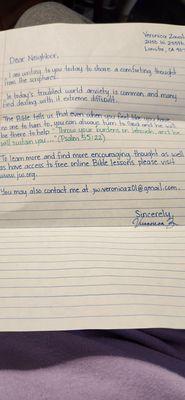 Veronica
Dear Neighbor,
I am writing to you today to share a comforting thought
from the scriptures.
In today's troubled world anxiety is common and many
find dealing with it extreme difficult.
The Bible tells us that even when you feel like you have
no one to turn to, you can always turn to God and he will
be there to help. "Throw your burdens on Jehovah, and he
will sustain you..." (Psalm 55:22)
To learn more and find more encouraging thought as well
as have access to free online Bible lessons, please visit
www.jw.org.
You may also contact me at jw.veronicaz01@gmail.com.
Sincerely,
Veronica Z.